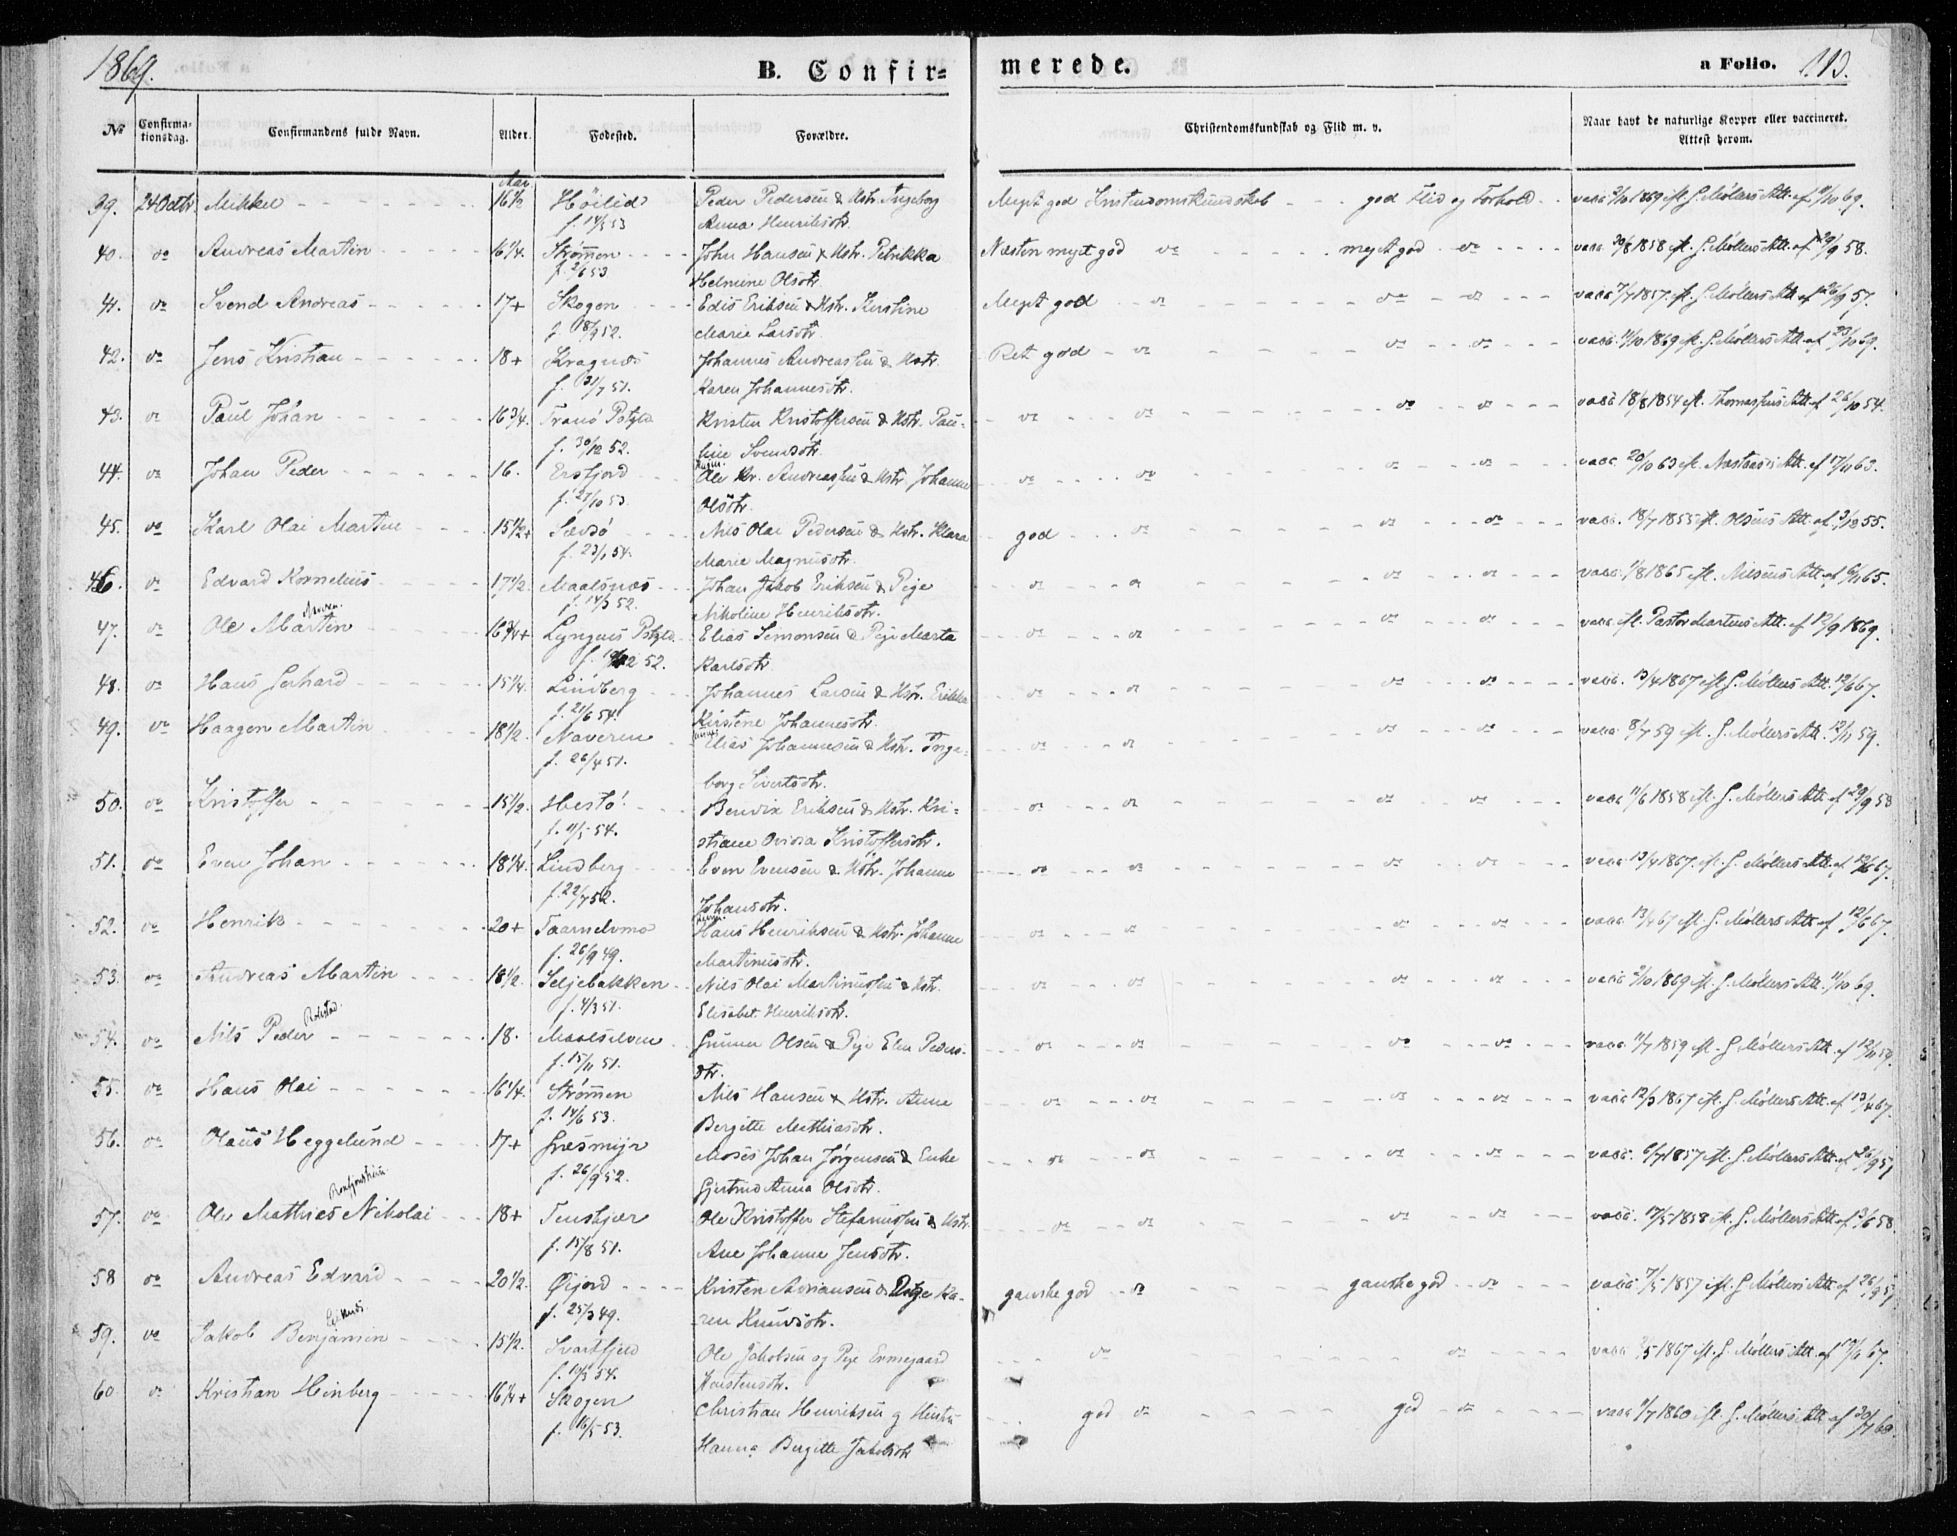 1869.
B. Confir-
merede.
a Folio. 113.
No
Confirma-
tionsdag.
Confirmandens fulde Navn.
Alder.
Fødested.
Forældre.
Christendomskundskab og Flid m. v.
Naar havt de naturlige Kopper eller vaccineret.
Attest herom.
39. 24 Octbr Mikkel 16½ Höilid Peder Pedersen & Hstr. Ingeborg Meget god Kristendomskundskab god Flid og Forhold vacc 1869 efl. G. Møllers Att. af 11/10 69.
f. 14/5 53 Anna Henriksdtr.
40. do Andreas Martin 16¼. Strømmen John Hansen & Hstr. Petrikka Næsten meget god do meget god do vacc. 30/8 1858 efl. G. Møllers Att. af 29/9 58.
f. 2/6 53 Helmine Olsdtr
41. do Svend Andreas 17+ Skogen Edis Eriksen & Hstr. Kirstine Meget god do do do vacc 7/7 1857. efl. G. Møllers Att. af 26/9 57.
f. 18/9 52. Marie Larsdtr.
42. do Jens Kristian 18+ Kragnæs Johannes Andreassen & Hstr. Ret god do do do vacc. 11/10 1869 efl. G. Møllers Att. af 23/10 69.
f. 31/7 51. Karen Johannesdtr.
43. do Paul Johan 16¾. Tranø Pstgld Kristen Kristoffersen & Hstr. Pau- do do do do vacc 18/8 1854 efl. Thomassens Att. af 26/10 54.
f. 30/12 52. line Svensdtr.
44. do Johan Peder 16. Ersfjord Ole Kr. Andreassen & Hstr. Johanne do do do do vacc. 20/10 63 efl. Att. af 17/11 63.
f. 27/10 53 Olsdtr.
45. do Karl Olai Martin 15½+ Nils Olai Pedersen & Hstr. Klara god do do do vacc. 18/7 1855 efl. Olsens Att. af 3/12 55.
f. 23/1 54. Marie Magnusdtr.
46. do Edvard Kornelius 17½. Maalsnæs Johan Jakob Eriksen & Pige do do do do vacc. 1/8 1865 efl. Nilsens Att. af 6/11 65.
f. 14/3 52. Nikoline Henriksdtr.
47. do Ole Martin 16¾+ Lyngens Pstgld Elias Simonsen & Pige Marta do do do do vacc efl. Pastor Martens Att. af 12/9 1869.
52. Karlsdtr
48. do Hans Gerhard 15¼. Lindberg Johannes Larsen & Hstr. Erikka do do do do vacc. 13/4 1867 efl. G. Møllers Att. 12/6 67.
f. 21/6 54. Kirstene Johannesdtr.
49. do Haagen Martin 18½. Naveren Elias Johannesen & Hstr. Inge- do do do do vacc 8/7 59 efl. G. Møllers Att. 12/11 59.
f. 26/4 51. borg Sivertsdtr.
50. do Kristoffer 15½. Hestö Bendix Eriksen & Hstr. Kri- do do do do vacc 11/6 1858 efl. G. Møllers Att. af 29/9 58
f. 11/5 54. stiane Kristoffersdtr.
51. do Even Johan 18¼. Lindberg Even Evensen & Hstr. Johanne do do do do vacc 13/4 1867. efl. G. Møllers Att. af 12/6 67.
f. 22/7 51. Johansdtr.
52. do Henrik 20+ Taarnelvmo Hans Henriksen & Hstr. Johanne do do do do vacc. 13/4 67 efl. G. Møllers Att. af 12/6 67.
f. 26/9 49. Martinusdtr.
53. do Andreas Martin 18½. Seljebakken Nils Olai Martinussen & Hstr. do do do do vacc 1869 efl. G. Møllers Att. 11/10 69.
f. 4/3 51. Elisabet Henriksdtr.
54. do Nils Peder 18. Maalselven Gunner Olsen & Pige Elen Peders- do do do do vacc. 11/7 1859 efl. G. Møllers Att. af 12/11 59.
f. 15/11 51. dtr.
55. do Hans Olai 16¼. Strømmen Nils Hansen & Hstr. Anne do do do do vacc 12/3 1867 efl. G. Møllers Att. af 13/4 67.
f. 14/6 53. Bergitte Mathiasdtr.
56. do Olaus Heggelund 17+ Græsmyr Moses Johan Jørgensen & Enke do do do do vacc. 6/7 1857 efl. G. Møllers Att. af 26/9 57
f. 26/9 52. Gjertrud Anna Olsdtr.
57. do Ole Mathias Nikolai 18+ Tenskjær Ole Kristoffer Stefanussen & Hstr. do do do do vacc. 17/5 1858 efl. G. Møllers Att. af 3/6 58.
f. 15/8 51. Ane Johanne Jensdtr.
58 do Andreas Edvard 20½. Öijord Kristen Adriansen & Pige Ka- ganske god do ganske god do vacc 7/5 1857 efl. G. Møllers Att. af 26/9 57
f. 25/3 49. ren Knudsdtr.
59. do Jakob Benjamin 15½. Svartfjeld Ole Jakobsen og Pige Ermegaard do do vacc 1867 efl. G. Møllers Att. af 67.
54. Karstensdtr.
60 do Kristian Heinberg 16¼+ Skogen Christian Henriksen og Hustru god do god do vacc 1/7 1860 efl. G. Møllers Att. af 30/7 60.
f. 16/5 53. Hanna Bergitte Jakobsdtr